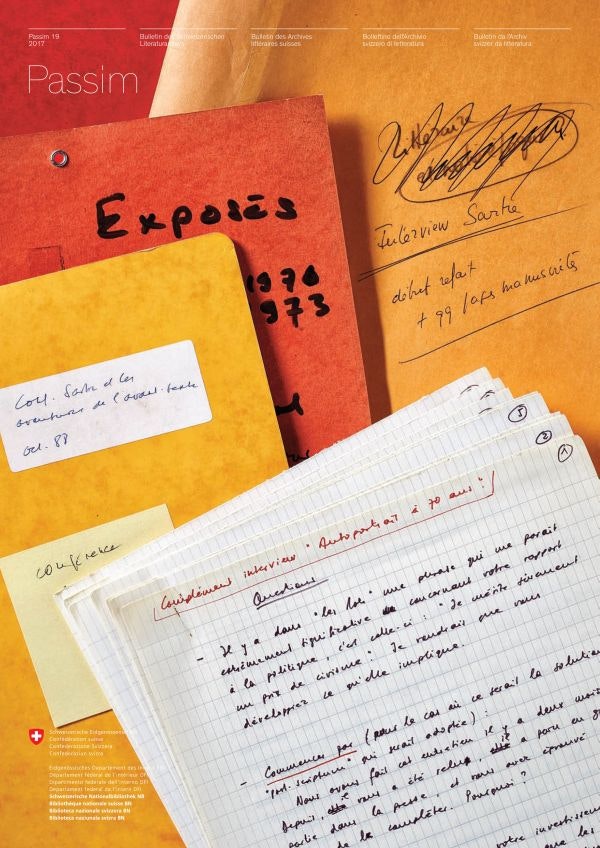 Passim 19
2017
Bulletin des Schweizerischen
Literaturarchivs
Bulletin des Archives
littéraires suisses
Bollettino dell'Archivio
svizzero di letteratura
Bulletin da l'Archiv
svizzer da litteratura
Passim
littéraire
Interview Sartre
début refait
+ 99 pages manuscrites
Exposés
1970
1973
Coll. Sartre et les
aventures de l'avant-texte
oct. 88
conférence
3
2
1
Complément interview "Autoportrait à 70 ans":
Questions
- Il y a dans "les Mots" une phrase qui me paraît
extrêmement significative concernant votre rapport
à la politique, c'est celle-ci : "Je mérite sûrement
un prix de civisme." Je voudrais que vous
développiez ce qu'elle implique.
Commencer par (pour le cas où ce serait la solution
"post-scriptum" qui serait adoptée) :
Nous avons fait cet entretien il y a deux mois
Depuis, vous l'avez relu, il a paru en
partie dans la presse, et vous avez éprouvé
de le compléter. Pourquoi ?
votre
Schweizerische Eidgenossenschaft
Confédération suisse
Confederazione Svizzera
Confederaziun svizra
Eidgenössisches Departement des Innern
Département fédéral de l'intérieur DFI
Dipartimento federale dell'interno DFI
Departament federal da l'intern DFI
Schweizerische Nationalbibliothek NB
Bibliothèque nationale suisse BN
Biblioteca nazionale svizzera BN
Biblioteca naziunala svizra BN